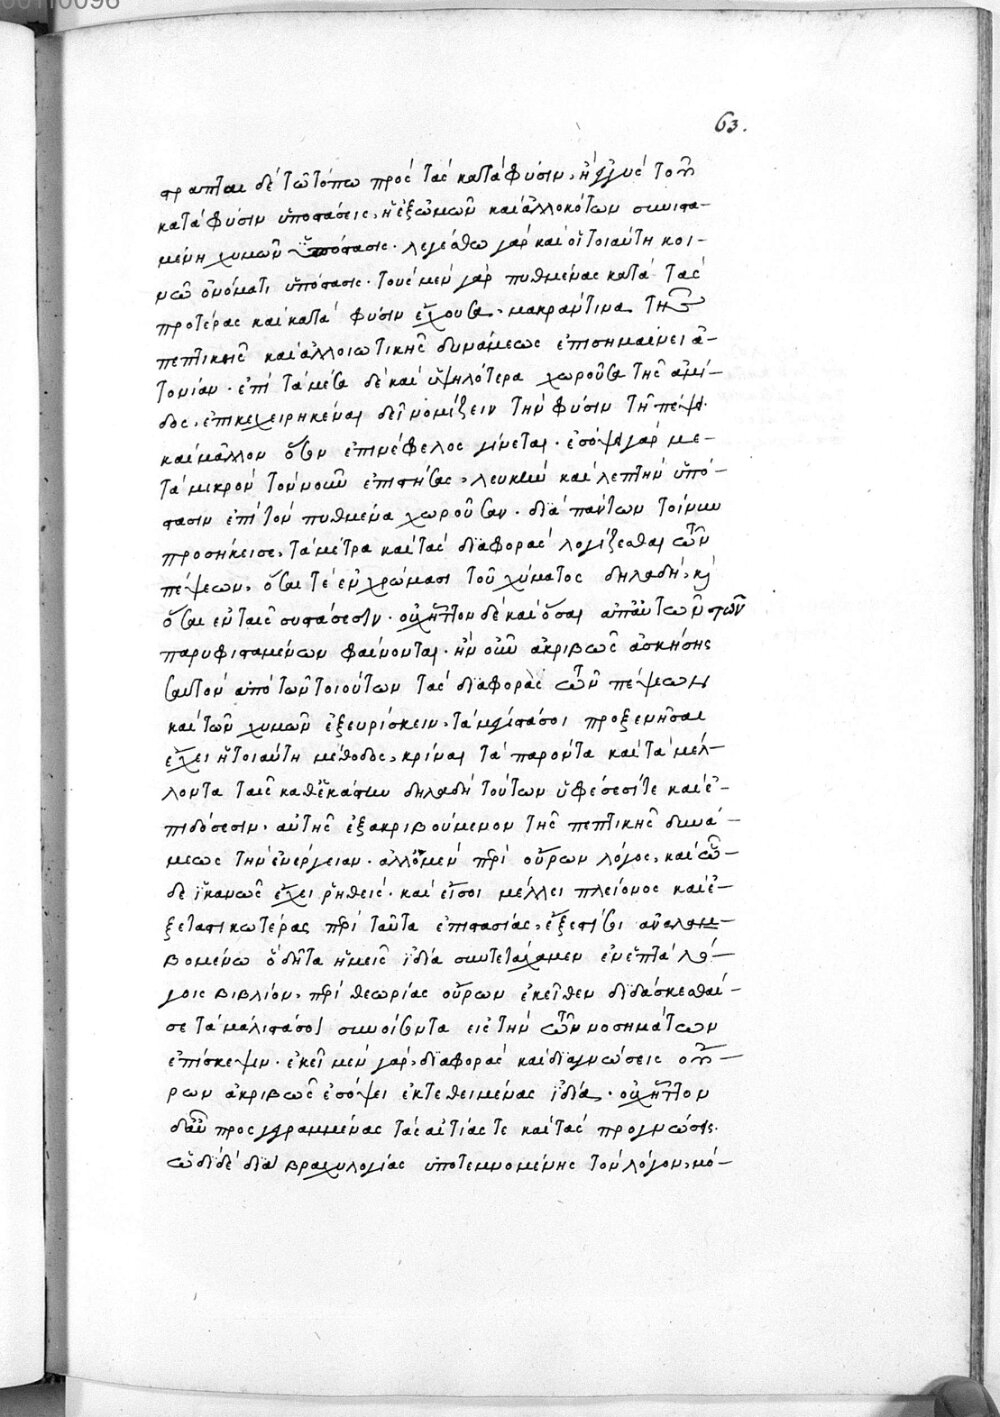 63.
στραπται δὲ τῶ τόπω πρὸς τὰς κατὰ φύσιν, ἢ ἐγγὺς τοῦ
κατὰ φύσιν ὑποστάσεις, ἢ ἐξ ὠμῶν καὶ ἀλλοκότων συνιστα-
μένη χυμῶν ὑπόστασις. λεγέσθω γὰρ καὶ ἡ τοιαύτη κοι-
νῶ ὀνόματι ὑπόστασις. τοὺς μὲν γὰρ πυθμένας κατὰ τὰς
προτέρας καὶ κατὰ φύσιν ἔχουσα, μακρὰν τινα τῆς
πεπτικῆς καὶ ἀλλοιωτικῆς δυνάμεως ἐπισημαίνει ἀ-
τονίαν. ἐπὶ τὰ μέσα δὲ καὶ ὑψηλότερα χωροῦσα τῆς ἀμί-
δος, ἐπικεχειρηκέναι δεῖ νομίζειν τὴν φύσιν τῆ πέψει.
καὶ μᾶλλον ὅταν ἐπινέφελος γίνεται. ἐσόψει γὰρ με-
τὰ μικρὸν τὸν νοῦν ἐπιστήσας, λευκὴν καὶ λεπτὴν ὑπό-
στασιν ἐπὶ τὸν πυθμένα χωροῦσαν. διὰ πάντων τοίνυν
προσήκει σε, τὰ μέτρα καὶ τὰς διαφορὰς λογίζεσθαι τῶν
πέψεων, ὅσαι τὲ ἐν χρώμασι τοῦ χύματος δηλαδὴ, κὶ
ὅσαι ἐν ταῖς συστάσεσιν. οὐχ ἧττον δὲ καὶ ὅσαι ἀπ' αὐτῶν τῶν
παρυφισταμένων φαίνονται. ἢν οὖν ἀκριβῶς ἀσκήσης
σαυτὸν ἀπὸ τῶν τοιούτων τὰς διαφορὰς τῶν πέψεων
καὶ τῶν χυμῶν ἐξευρίσκειν, τὰ μέγιστά σοι προξενῆσαι
ἔχει ἡ τοιαύτη μέθοδος, κρίναι τὰ παρόντα καὶ τὰ μέλ-
λοντα ταῖς καθ' ἑκάστην δηλαδὴ τούτων ὑφέσεσί τε καὶ ἐ-
πιδόσεσιν, αὐτῆς ἐξακριβούμενον τῆς πεπτικῆς δυνά-
μεως τὴν ἐνέργειαν. ἀλλ' ὁ μὲν περὶ οὔρων λόγος, καὶ ὧ-
δε ἱκανῶς ἔχει ῥηθείς. καὶ εἴ σοι μέλλει πλείονος καὶ ἐ-
ξεταστικωτέρας περὶ ταῦτα ἐπιστασίας, ἔξεστί σοι ἀναλαμ-
βομένω ὃ δῆτα ἡμεῖς ἰδία συντετάχαμεν ἐν ἑπτὰ λό-
γοις βιβλίον, περὶ θεωρίας οὔρων ἐκεῖθεν διδάσκεσθαί-
σε τὰ μάλιστά σοι συνοίσοντα εἰς τὴν τῶν νοσημάτων
ἐπίσκεψιν. ἐκεῖ μὲν γὰρ, διαφορὰς καὶ διαγνώσεις οὔ-
ρων ἀκριβῶς ἐσόψει ἐκτεθειμένας ἰδία. οὐχ ἧττον
δ' αὖ προσγεγραμμένας τὰς αἰτίας τε καὶ τὰς προγνώσεις.
ὡδὶ δὲ διὰ βραχυλογίας ὑποτεμνομένης τὸν λόγον, μό-